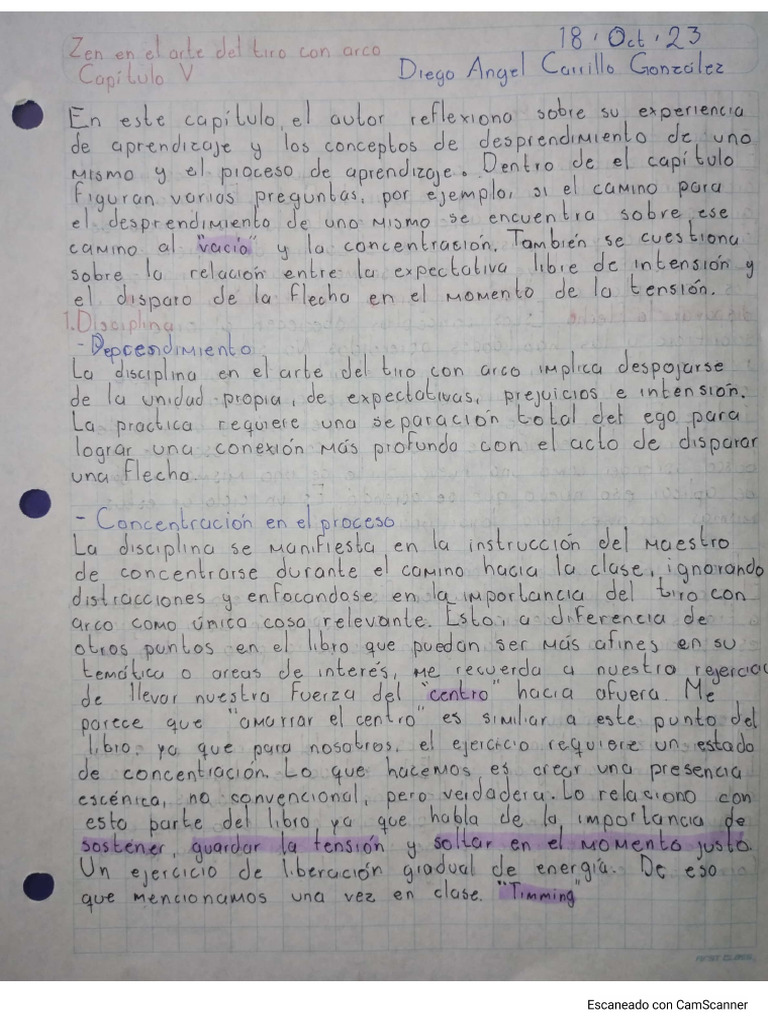 Zen en el arte del tiro con arco
18 . Oct . 23
Capítulo V
Diego Angel Carrillo González
En este capítulo, el autor reflexiona sobre su experiencia
de aprendizaje y los conceptos de desprendimiento de uno
mismo y el proceso de aprendizaje. Dentro de el capítulo
figuran varias preguntas, por ejemplo, si el camino para
el desprendimiento de uno mismo se encuentra sobre ese
camino al "vacío" y la concentración. También se cuestiona
sobre la relación entre la expectativa libre de intensión y
el disparo de la flecha en el momento de la tensión.
1. Disciplina
- Deprendimiento
La disciplina en el arte del tiro con arco implica despojarse
de la unidad propia, de expectativas, prejuicios e intensión.
La practica requiere una separación total del ego para
lograr una conexión más profunda con el acto de disparar
una flecha.
- Concentración en el proceso
La disciplina se manifiesta en la instrucción del maestro
de concentrarse durante el camino hacia la clase, ignorando
distracciones y enfocandose en la importancia del tiro con
arco como única cosa relevante. Esto, a diferencia de
otros puntos en el libro que puedan ser más afines en su
temática o areas de interés, me recuerda a nuestra
de llevar nuestra fuerza del "centro" hacia afuera. Me
parece que "amarrar el centro" es similar a este punto del
libro, ya que para nosotros, el ejercicio requiere un estado
de concentración. Lo que hacemos es crear una presencia
escénica, no convencional, pero verdadera. Lo relasiono con
esto parte del libro ya que habla de la importancia de
sostener, guardar la tensión y soltar en el momento justo.
Un ejercicio de liberación gradual de energía. De eso
que mencionamos una vez en clase. "Timming"
Escaneado con CamScanner